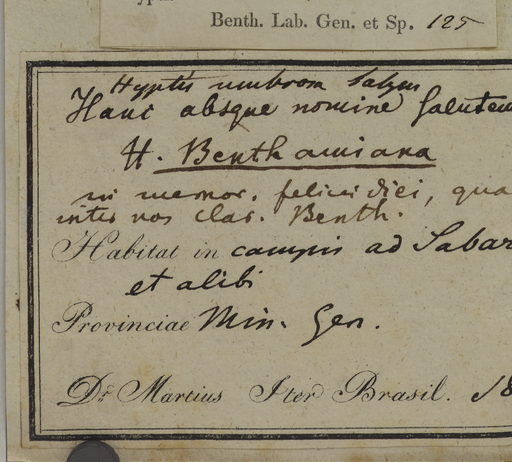 Benth. Lab. Gen. et Sp. 125
Hyptis umbrosa Salzm
Hanc absque nomine Saluten
H. Benthamiana
in memor. felicis diei, qua
inter nos clar. Benth.
Habitat in campis ad Sabar
et alibi
Provinciae Min. Gen.
Dr. Martius Iter Brasil. 18